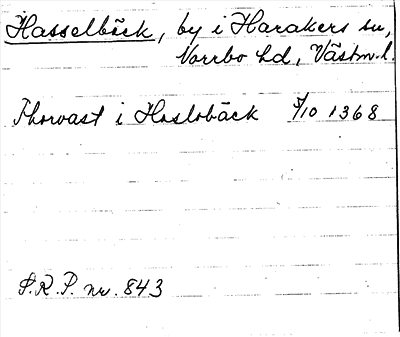 Hasselbäck, by i Harakers sn,
Norrbo hd, Västm.l.
Thorvast i Haslobäck 5/10 1368
S.R.P. nr. 843